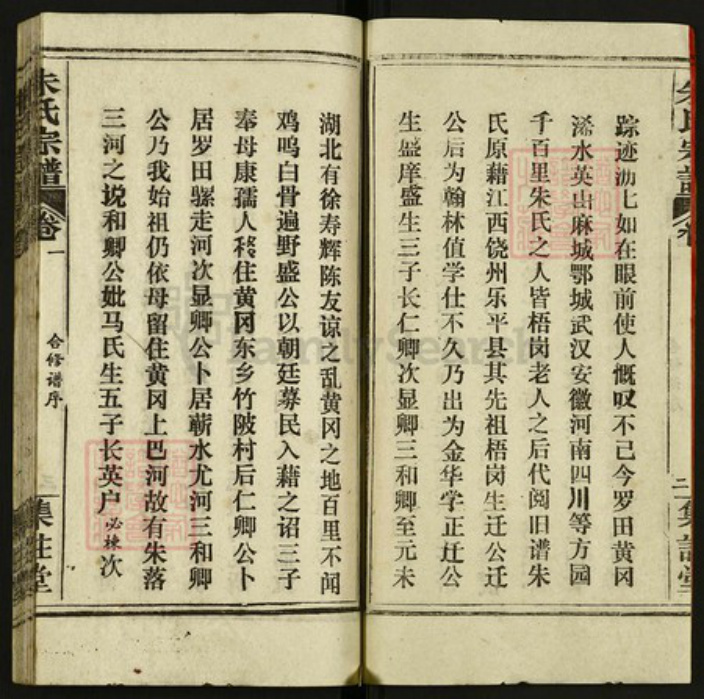 踪迹沥七如在眼前使人慨叹不己今罗田黄冈
浠水英山麻城鄂城武汉安徽河南四川等方园
千百里朱氏之人皆梧岗老人之后代阅旧谱朱
氏原藉江西饶州乐平县其先祖梧岗生迁公迁
公后为翰林值学仕不久乃出为金华学正迁公
生盛庠盛生三子长仁卿次显卿三和卿至元末
湖北有徐寿辉陈友谅之乱黄冈之地百里不闻
鸡鸣白骨遍野盛公以朝廷募民入藉之诏三子
奉母康孺人移住黄冈东乡竹陂村后仁卿公卜
居罗田骡走河次显卿公卜居蕲水尤河三和卿
公乃我始祖仍依母留住黄冈上巴河故有朱落
三河之说和卿公妣马氏生五子长英户必栋次
朱氏宗谱
卷一
合修谱序
二
FamilySearch